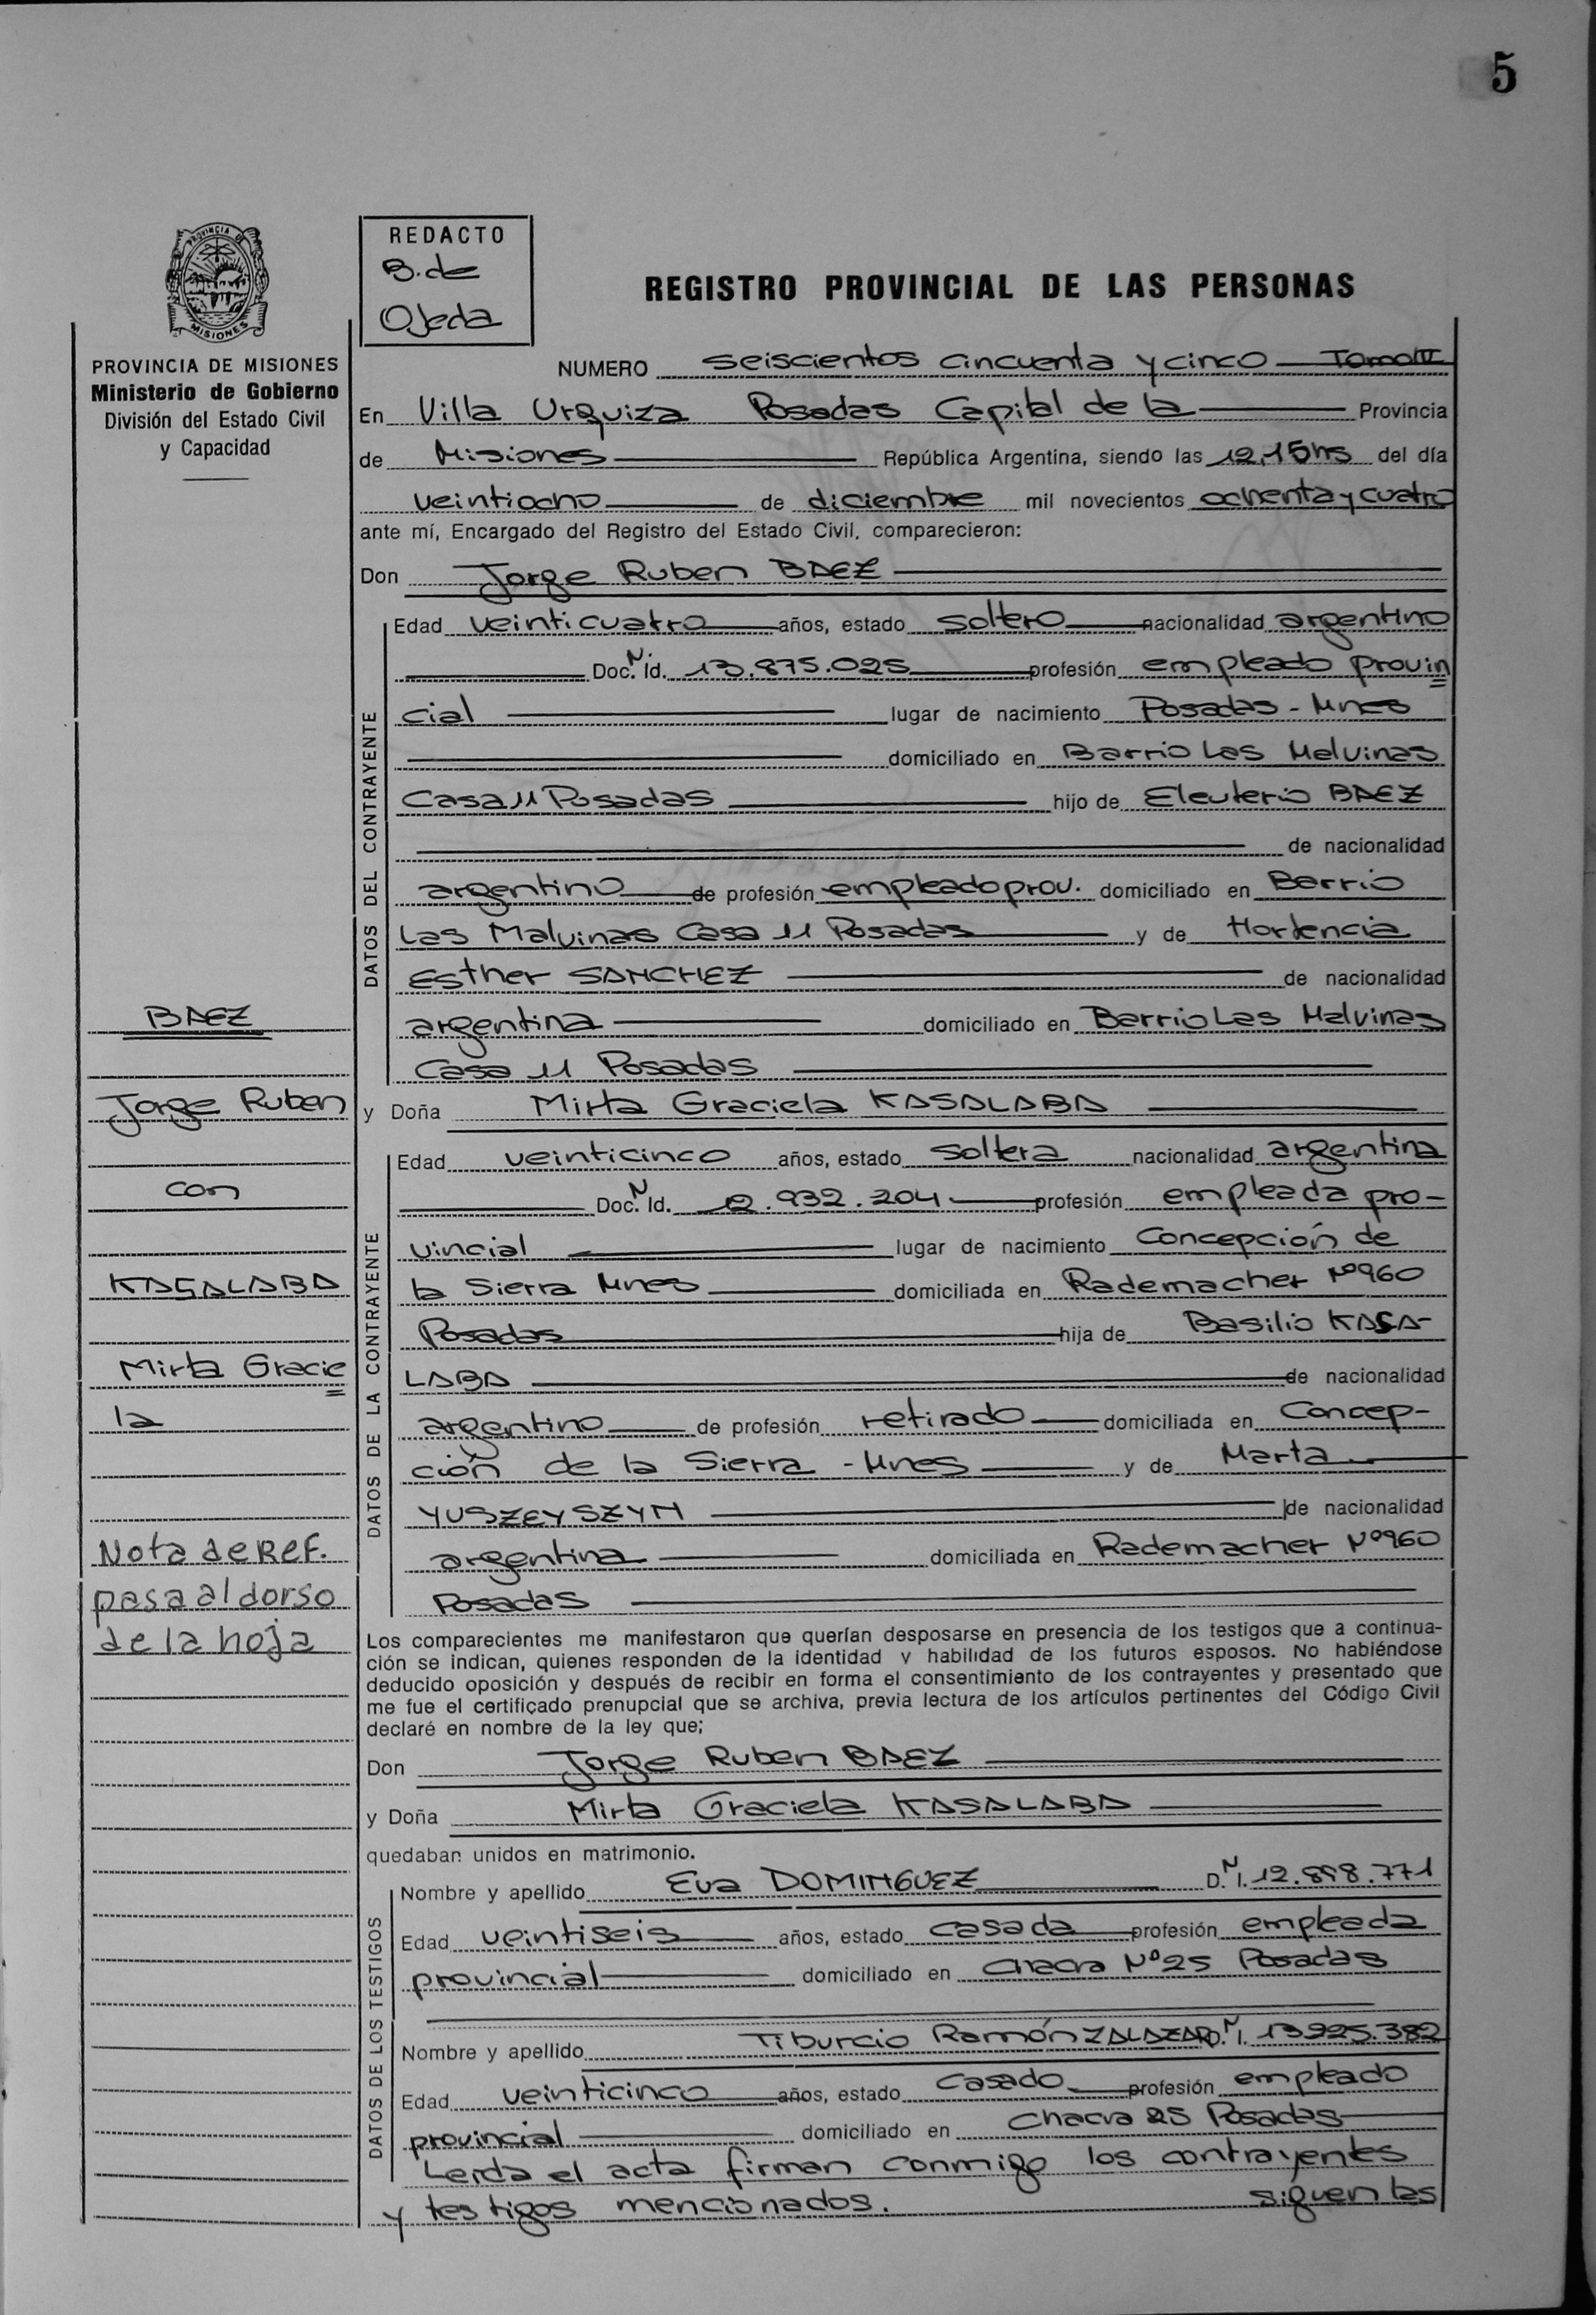 5
PROVINCIA DE
MISIONES
REDACTO
B. de
Ojeda
REGISTRO PROVINCIAL DE LAS PERSONAS
PROVINCIA DE MISIONES
Ministerio de Gobierno
División del Estado Civil
y Capacidad
NUMERO seiscientos cincuenta y cinco Tomo IV
En Villa Urquiza Posadas Capital de la Provincia
de Misiones República Argentina, siendo las 12,15hs del día
veintiocho de diciembre mil novecientos ochenta y cuatro
ante mí, Encargado del Registro del Estado Civil, comparecieron:
Don Jorge Ruben BAEZ
DATOS DEL CONTRAYENTE
Edad veinticuatro años, estado soltero nacionalidad argentino
Doc. N. Id. 13.875.025 profesión empleado provin
cial lugar de nacimiento Posadas - Mnes
domiciliado en Barrio Las Malvinas
Casa 11 Posadas hijo de Eleuterio BAEZ
de nacionalidad
argentino de profesión empleado prov. domiciliado en Barrio
Las Malvinas Casa 11 Posadas y de Hortencia
Esther SANCHEZ de nacionalidad
argentina domiciliado en Barrio Las Malvinas
Casa 11 Posadas
y Doña Mirta Graciela KASALABA
DATOS DE LA CONTRAYENTE
Edad veinticinco años, estado soltera nacionalidad argentina
Doc. N Id. 12.932.204 profesión empleada pro-
vincial lugar de nacimiento Concepción de
la Sierra Mnes domiciliada en Rademacher Nº960
Posadas hija de Basilio KASA-
LABA de nacionalidad
argentino de profesión retirado domiciliada en Concep-
ción de la Sierra - Mnes y de Marta
YUSZEYSZYN de nacionalidad
argentina domiciliada en Rademacher Nº960
Posadas
BAEZ
Jorge Ruben
con
KASALABA
Mirta Gracie
la
Nota de Ref.
pasa al dorso
de la hoja
Los comparecientes me manifestaron que querían desposarse en presencia de los testigos que a continua-
ción se indican, quienes responden de la identidad y habilidad de los futuros esposos. No habiéndose
deducido oposición y después de recibir en forma el consentimiento de los contrayentes y presentado que
me fue el certificado prenupcial que se archiva, previa lectura de los artículos pertinentes del Código Civil
declaré en nombre de la ley que;
Don Jorge Ruben BAEZ
y Doña Mirta Graciela KASALABA
quedaban unidos en matrimonio.
DATOS DE LOS TESTIGOS
Nombre y apellido Eva DOMINGUEZ D.N.I. 12.898.771
Edad veintiseis años, estado casada profesión empleada
provincial domiciliado en Chacra Nº25 Posadas
Nombre y apellido Tiburcio Ramón ZALAZAR D.N.I. 13.925.382
Edad veinticinco años, estado casado profesión empleado
provincial domiciliado en Chacra 25 Posadas
Leída el acta firman conmigo los contrayentes
y testigos mencionados. siguen las